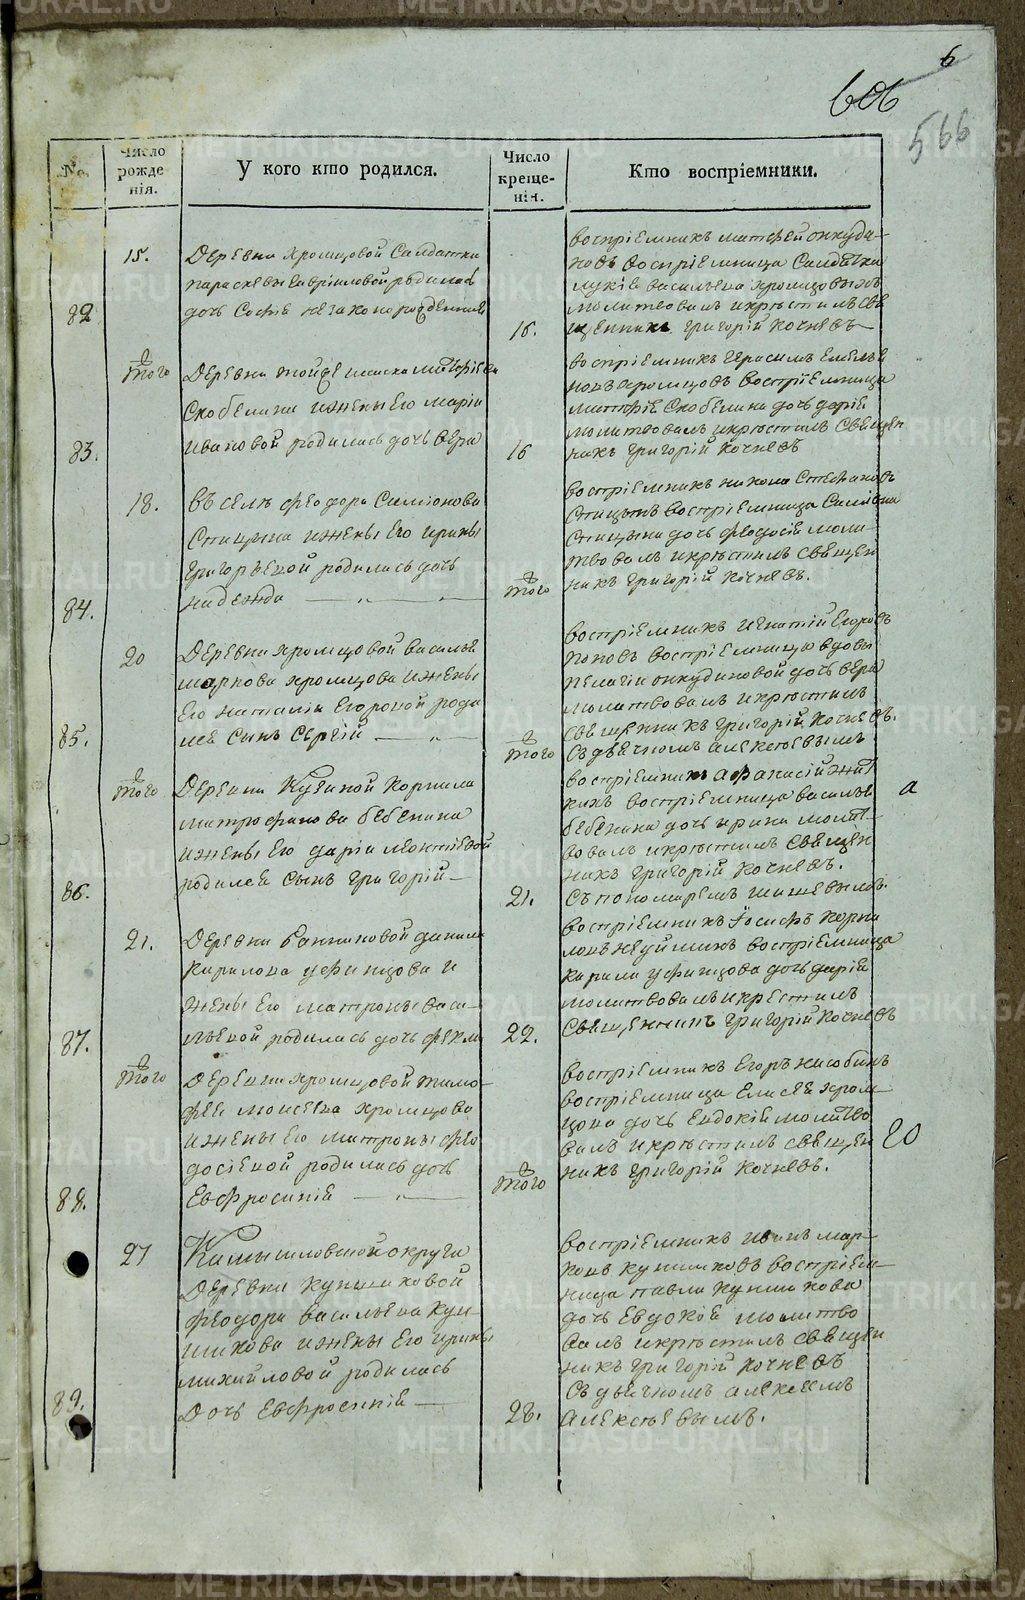 6
606
566
№.
Число рожде нія.
У кого кто родился.
Число креще- нія.
Кто воспріемники.
82
15.
Деревни Хромцовой Салдатки
параскевы гаврииловой родилась
дочь Софiя незаконорожденная
16.
воспріемникъ матфей онкуди-
новъ воспріемница Салдатка
лукiя васильева хромцовыхъ
молитвовалъ икрѣстилъ свя
щенникъ григорій Кочневъ
83.
того
Деревни
Скобелина ижены его маріи
ивановой родилась дочь вера
16
воспріемникъ герасимъ емелья
новъ хромцовъ воспріемница
матфiя Скобелина дочь дарiя
молитвовалъ икрѣстилъ Священ
никъ григорій Кочневъ
84.
18.
въ селѣ феодора Симіонова
Спицына ижены его ирины
григорьевой родилась дочь
надежда
того
воспріемникъ никола Стефановъ
Спицынъ воспріемница Симіона
Спицына дочь феодосiя моли
твовалъ икрѣстилъ Священ
никъ григорій Кочневъ.
85.
20
Деревни хромцовой василья
маркова хромцова ижены
его наталiи егоровой роди
лся сынъ Сергій
того
воспріемникъ игнатій егоровъ
поповъ воспріемница вдовы
пелагiи онкудиновой дочь вера
молитвовалъ икрѣстилъ
священникъ григорій Кочневъ.
Съ дьячкомъ алексѣевымъ
86.
того
Деревни Кузиной Корнила
митрофанова бебенина
ижены его дарiи леонтiевой
родился сынъ григорій
21.
воспріемникъ афанасій
воспріемница василья
бебенина дочь ирина молит
вовалъ икрѣстилъ Священ
никъ григорій Кочневъ.
Съ пономаремъ
а
87.
21.
Деревни банниковой данила
Кирилова уфинцова и
жены его матроны васи-
льевой родилась дочь фекла
22.
воспріемникъ Іосифъ Корни
ловъ воспріемница
Кирила уфинцова дочь дарiя
молитвовалъ икрестилъ
Священникъ григорій Кочневъ
88.
того
Деревни хромцовой тимо-
фея моисеева хромцова
ижены его матроны фео
досiевой родилась дочь
Евфросинiя
того
воспріемникъ Егоръ
воспріемница Елисея хром
цова дочь Евдокiя молитво
валъ икрѣстилъ священ
никъ григорій Кочневъ.
20
89.
27
Камышловской округи
Деревни куншиковой
феодора васильева кун-
шикова ижены его ирины
михайловой родилась
Дочь Евфросинiя
28.
воспріемникъ иванъ мар-
ковъ куншиковъ воспріем-
ница павла куншикова
дочь Евдокiя молитво
валъ икрѣстилъ священ
никъ григорій Кочневъ
Съ дьячкомъ алексеемъ
алексѣевымъ.
METRIKI.GASO-URAL.RU